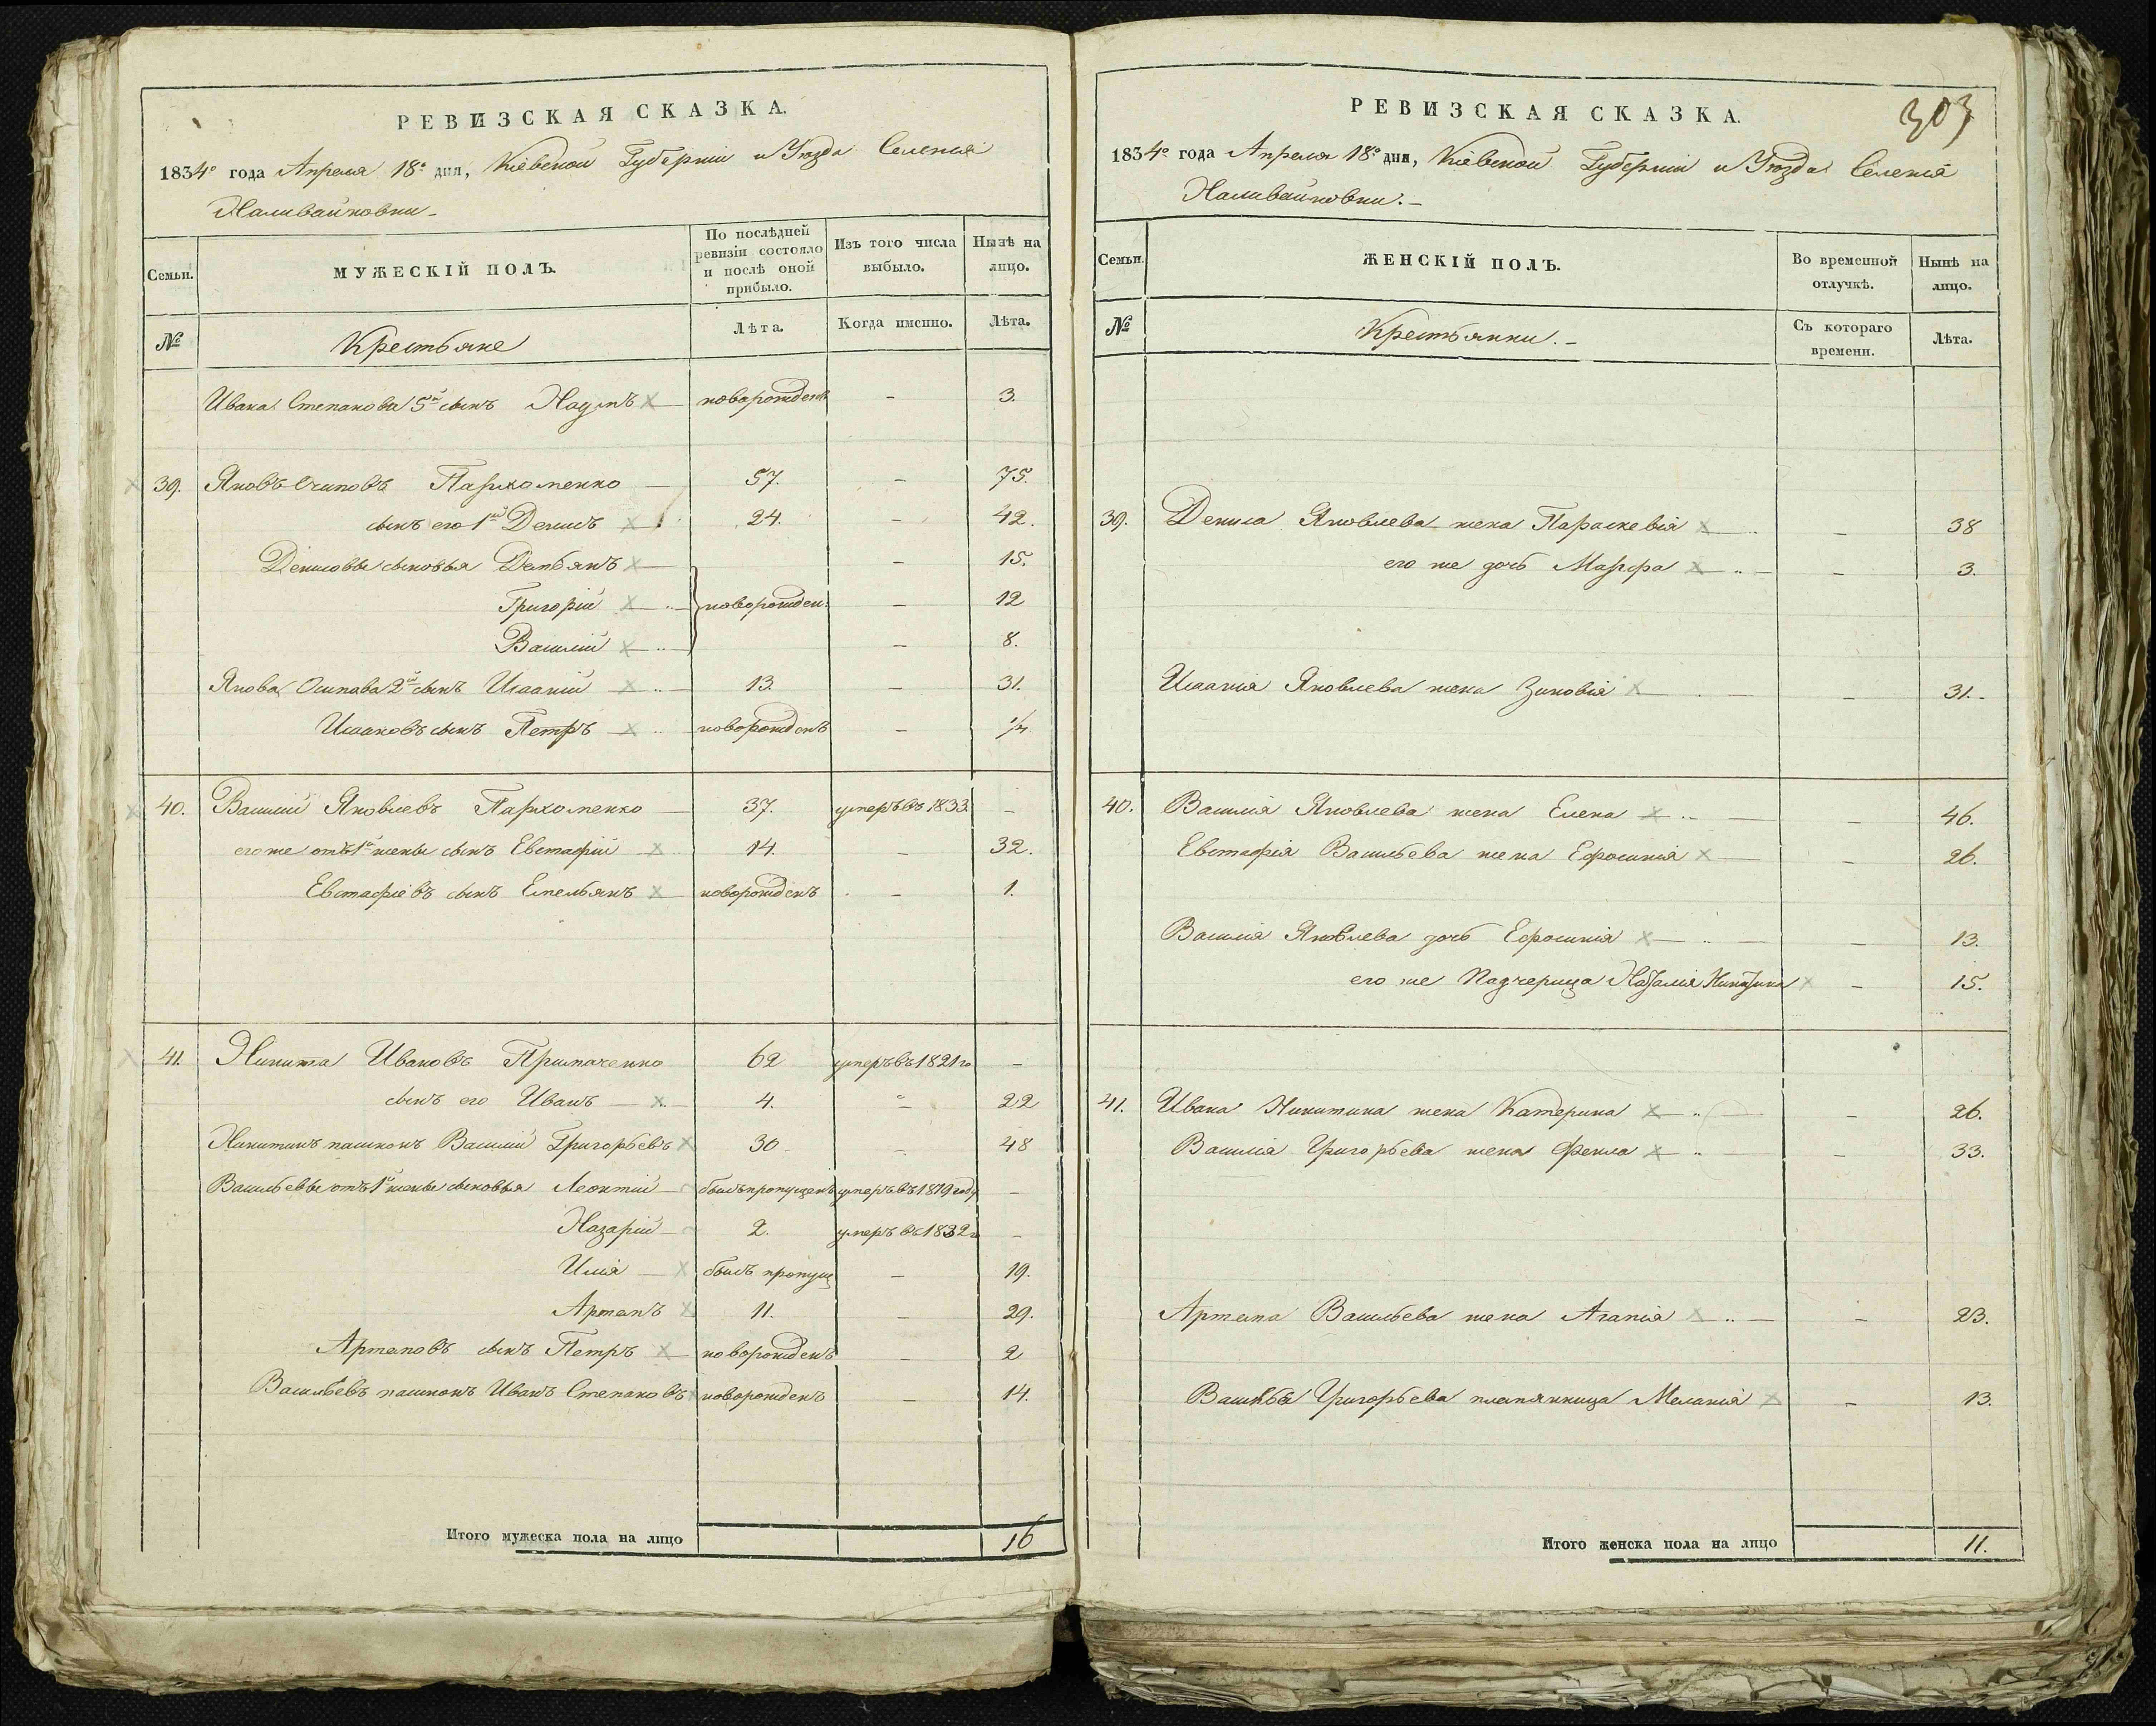 РЕВИЗСКАЯ СКАЗКА.
1834го года Апреля 18го дня, Кіевской Губерніи и Уѣзда Селенія
Наливайковки
Семьи.
МУЖЕСКІЙ ПОЛЪ.
По послѣдней ревизіи состояло и послѣ оной прибыло.
Изъ того числа выбыло.
Нынѣ на лицо.
№
Крестьяне
Лѣта.
Когда именно.
Лѣта.
Ивана Степанова 5й сынъ Наумъ новорожденъ - 3.
39. Яковъ Осиповъ Пархоменко 57. - 75.
сынъ его 1й Денисъ 24. - 42.
Денисовы сыновья Демьянъ - 15.
Григорій новорожден. - 12
Василій - 8.
Якова Осипова 2й сынъ Исаакій 13. - 31.
Исааковъ сынъ Петръ новорожденъ - 1/4
40. Василій Яковлевъ Пархоменко 37. умеръ въ 1833. -
его же отъ 1й жены сынъ Евстафій 14. - 32.
Евстафіевъ сынъ Емельянъ новорожденъ - 1.
41. Никита Ивановъ Примаченко 62 умеръ въ 1821го -
сынъ его Иванъ 4. - 22
Никитинъ пасынокъ Василій Григорьевъ 30 - 48
Васильевы отъ 1й жены сыновья Леонтій былъ пропущенъ умеръ въ 1819 году -
Назарій 2. умеръ въ 1832г -
Илія былъ пропущ - 19.
Артемъ 11. - 29.
Артемовъ сынъ Петръ новорожденъ - 2
Васильевъ пасынокъ Иванъ Степановъ новорожденъ - 14.
Итого мужеска пола на лицо 16
303
РЕВИЗСКАЯ СКАЗКА.
1834го года Апреля 18го дня, Кіевской Губерніи и Уѣзда Селенія
Наливайковки.
Семьи.
ЖЕНСКІЙ ПОЛЪ.
Во временной отлучкѣ.
Нынѣ на лицо.
№
Крестьянки.
Съ котораго времени.
Лѣта.
39. Дениса Яковлева жена Параскевія - 38
его же дочь Марфа - 3.
Исаакія Яковлева жена Зиновія - 31.
40. Василія Яковлева жена Елена - 46.
Евстафія Васильева жена Ефросинія - 26.
Василія Яковлева дочь Ефросинія - 13.
его же Падчерица Наталія Никитина - 15.
41. Ивана Никитина жена Катерина - 26.
Василія Григорьева жена Фекла - 33.
Артема Васильева жена Агапія - 23.
Григорьева племянница Меланія - 13.
Итого женска пола на лицо 11.